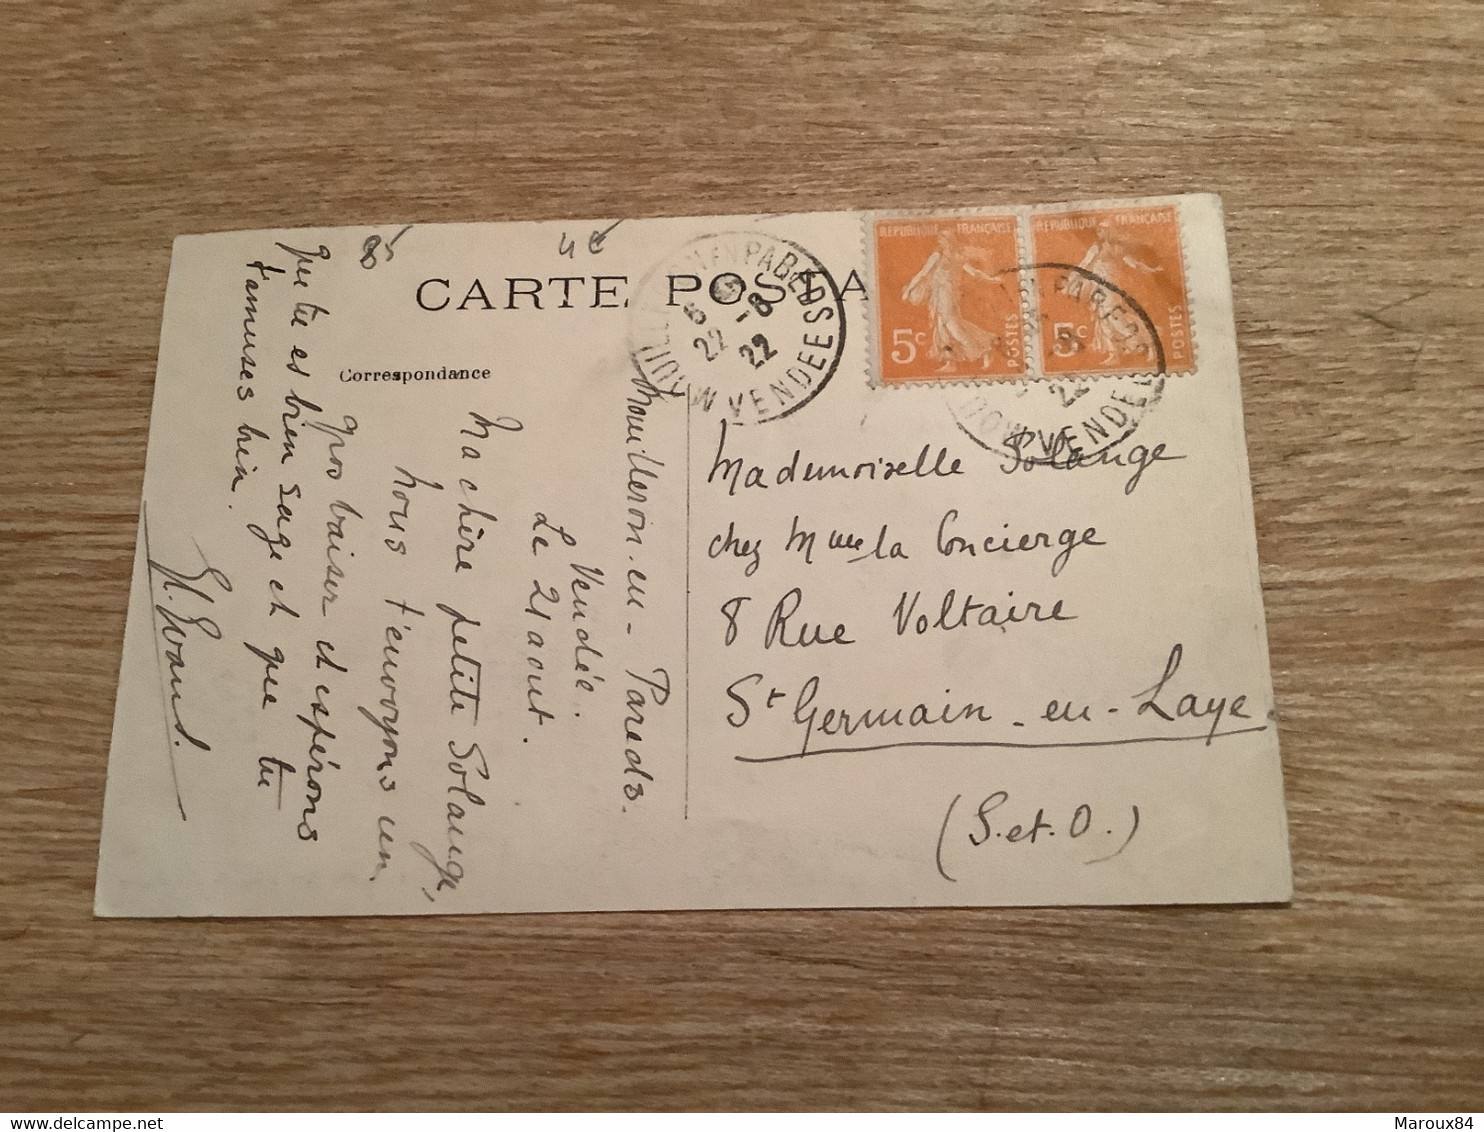 8
4€
CARTE POSTA
Correspondance
MOUILLERON EN PAREDS
22 -8
22
VENDEE
REPUBLIQUE FRANÇAISE
5c
POSTES
REPUBLIQUE FRANÇAISE
5c
POSTES
PAREDS
22
VENDEE
Mouilleron-en-Pareds.
Vendée.
Le 21 aout.
Ma chère petite Solange,
nous t'envoyons un
gros baiser et espérons
que tu es bien sage et que tu
t'amuses bien.
Mademoiselle Solange
chez Mme la Concierge
8 Rue Voltaire
St Germain-en-Laye
(S.et.O.)
Maroux84
delcampe.net